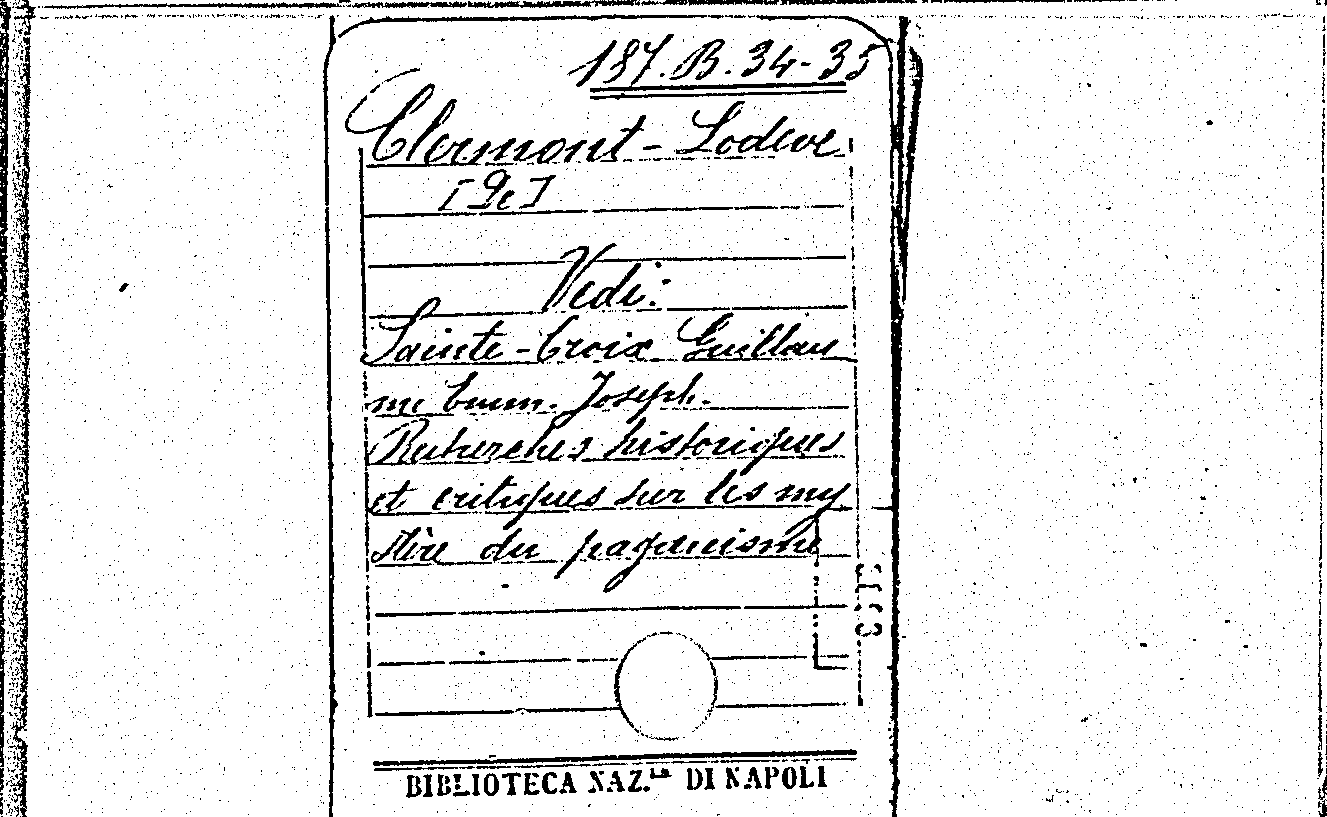 187.B.34-35
Clermont-Lodève
[De]
Vedi:
Sainte-Croix Guillau
me Emm. Joseph.
Recherches historiques
et critiques sur les my
stère du paganisme
BIBLIOTECA NAZ.LE DI NAPOLI